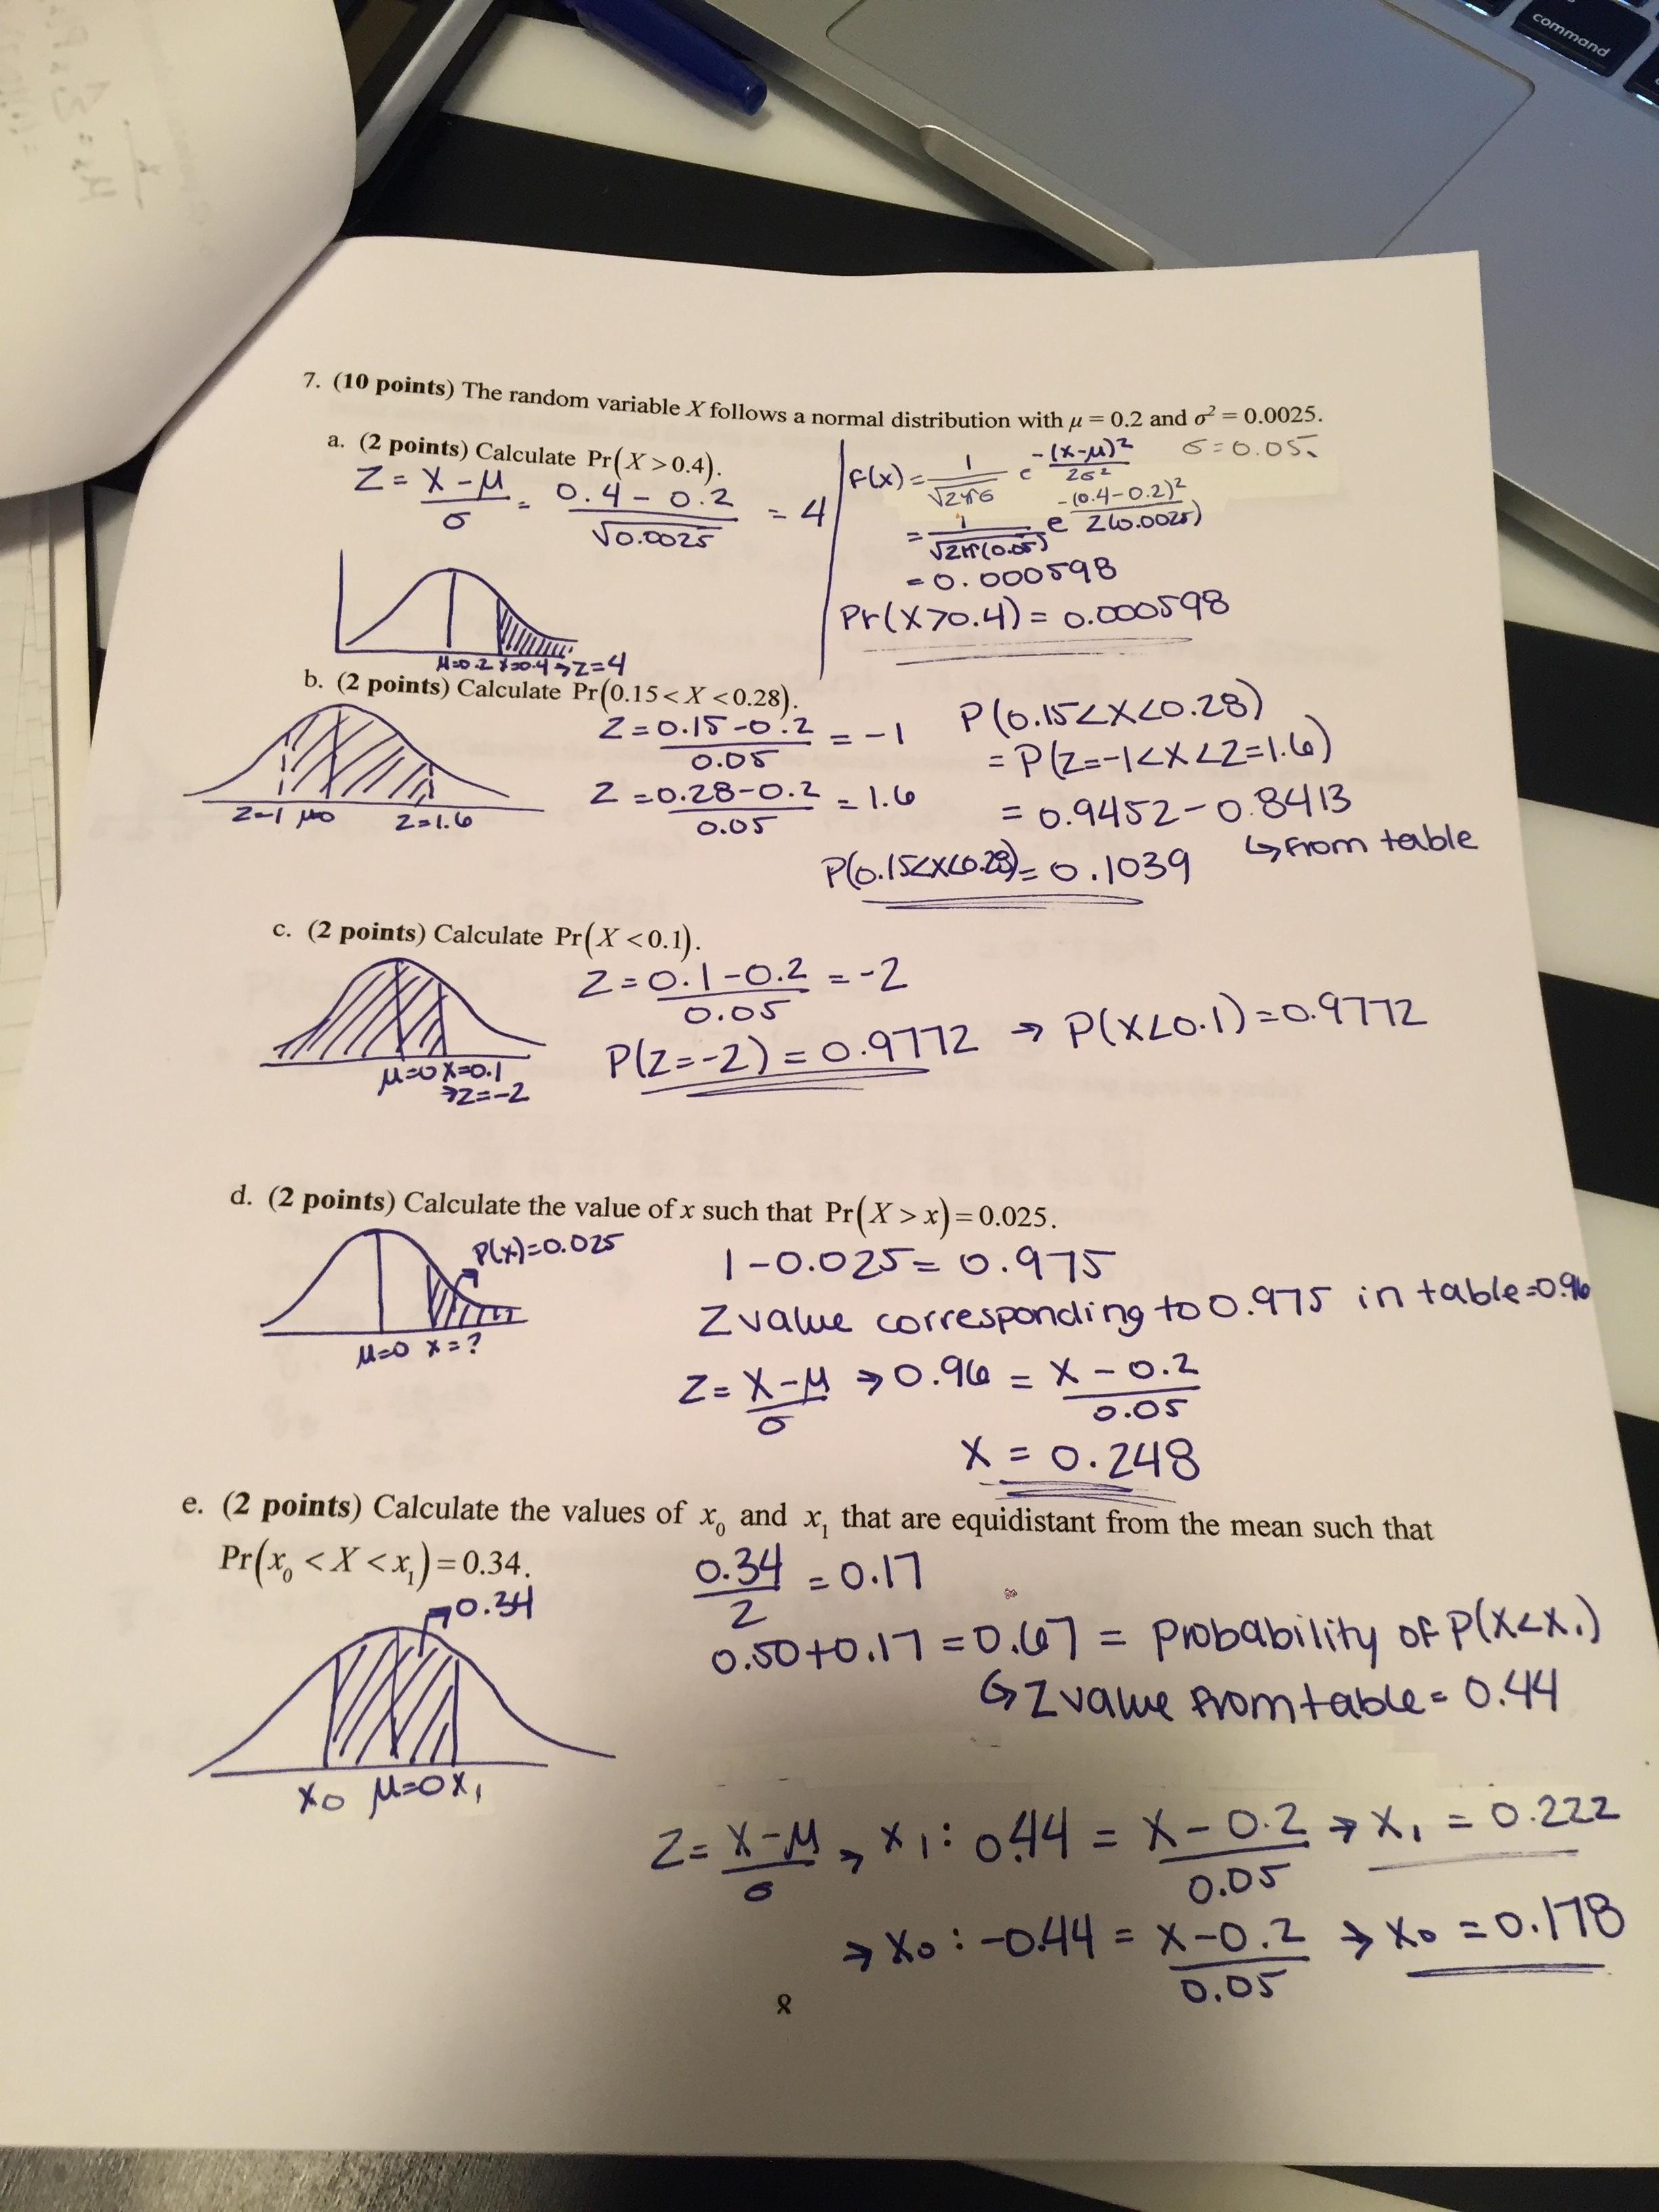 command
7. (10 points) The random variable X follows a normal distribution with μ = 0.2 and σ² = 0.0025.
σ = 0.05
a. (2 points) Calculate Pr(X > 0.4).
Z = X - μ / σ = 0.4 - 0.2 / √0.0025 = 4
F(x) = 1 / √2πσ e -(x-μ)² / 2σ²
= 1 / √2π(0.05) e -(0.4-0.2)² / 2(0.0025)
= 0.000598
Pr(X>0.4) = 0.000598
μ=0.2 x=0.4 → Z=4
b. (2 points) Calculate Pr(0.15 < X < 0.28).
Z = 0.15-0.2 / 0.05 = -1
Z = 0.28-0.2 / 0.05 = 1.6
P(0.15<X<0.28)
= P(Z=-1<X<Z=1.6)
= 0.9452-0.8413
↳ from table
P(0.15<X<0.28) = 0.1039
Z=-1 μ=0 Z=1.6
c. (2 points) Calculate Pr(X < 0.1).
Z = 0.1-0.2 / 0.05 = -2
P(Z=-2) = 0.9772 → P(X<0.1) = 0.9772
μ=0 X=0.1
→Z=-2
d. (2 points) Calculate the value of x such that Pr(X > x) = 0.025.
P(x)=0.025
μ=0 x=?
1-0.025 = 0.975
Z value corresponding to 0.975 in table=0.96
Z = X-μ / σ → 0.96 = X - 0.2 / 0.05
X = 0.248
e. (2 points) Calculate the values of x₀ and x₁ that are equidistant from the mean such that
Pr(x₀ < X < x₁) = 0.34.
0.34
X₀ μ=0 X₁
0.34 / 2 = 0.17
0.50+0.17 = 0.67 = probability of P(X<X₁)
↳ Z value from table = 0.44
Z = X-μ / σ → X₁: 0.44 = X - 0.2 / 0.05 → X₁ = 0.222
→ X₀: -0.44 = X-0.2 / 0.05 → X₀ = 0.178
8